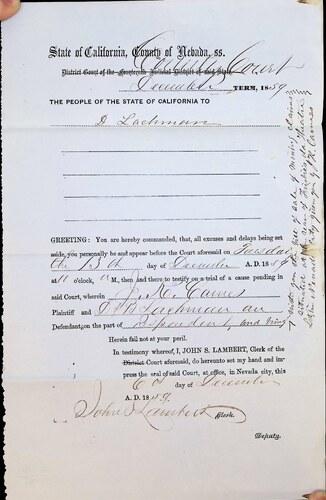 State of California, County of Nevada, ss.
County Court
District Court of the Fourteenth Judicial District of said State,
December TERM, 1859
THE PEOPLE OF THE STATE OF CALIFORNIA TO
D Lachman
GREETING: You are hereby commanded, that, all excuses and delays being set
aside, you personally be and appear before the Court aforesaid on Tuesday
the 13th day of December A. D. 1859
at 10 o'clock, A M., then and there to testify on a trial of a cause pending in
said Court, wherein J. K. Carnes
Plaintiff and D Lachman are
Defendant, on the part of Defendent, and bring
Herein fail not at your peril.
In testimony whereof, I, JOHN S. LAMBERT, Clerk of the
District Court aforesaid, do hereunto set my hand and im-
press the seal of said Court, at office, in Nevada city, this
6th day of December
A. D. 1859.
John S Lambert Clerk.
Deputy.
with you bill of sale of mining claims